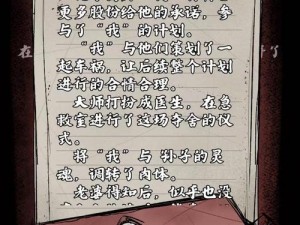 更多股份给他的承诺，参
与了“我”的计划。
“我”与他们策划了一
起车祸，让后续整个计划
进行的合情合理。
大师打扮成医生，在急
救室进行了这场夺舍的仪
式。
将“我”与孙子的灵
魂，调转了肉体。
老滿得知后，似乎也没
在
了